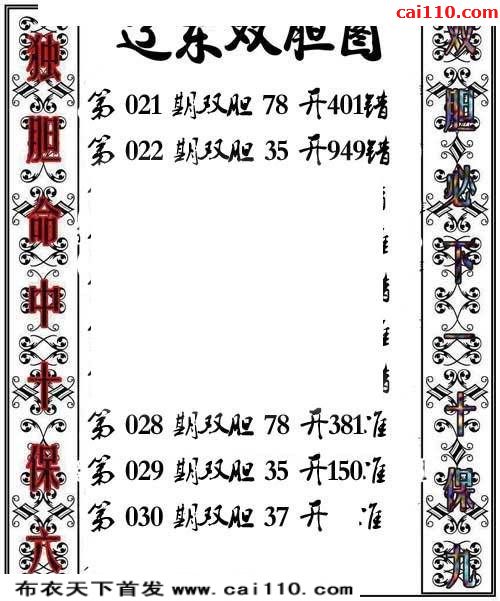 cai110.com
辽东双胆图
独胆命中十保六
第 021 期双胆 78 开401错
第 022 期双胆 35 开949错
第 028 期双胆 78 开381准
第 029 期双胆 35 开150准
第 030 期双胆 37 开 准
双胆必下一十保九
布衣天下首发 www.cai110.com